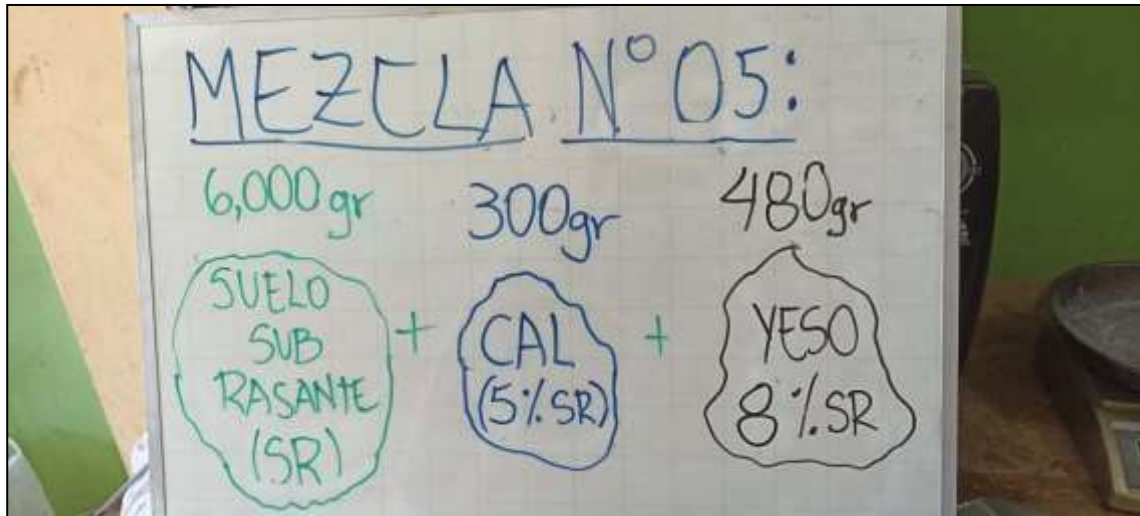 MEZCLA N° 05:
6,000 gr 300gr 480gr
SUELO
SUB
RASANTE
(SR)
+
CAL
(5% SR)
+
YESO
8% SR